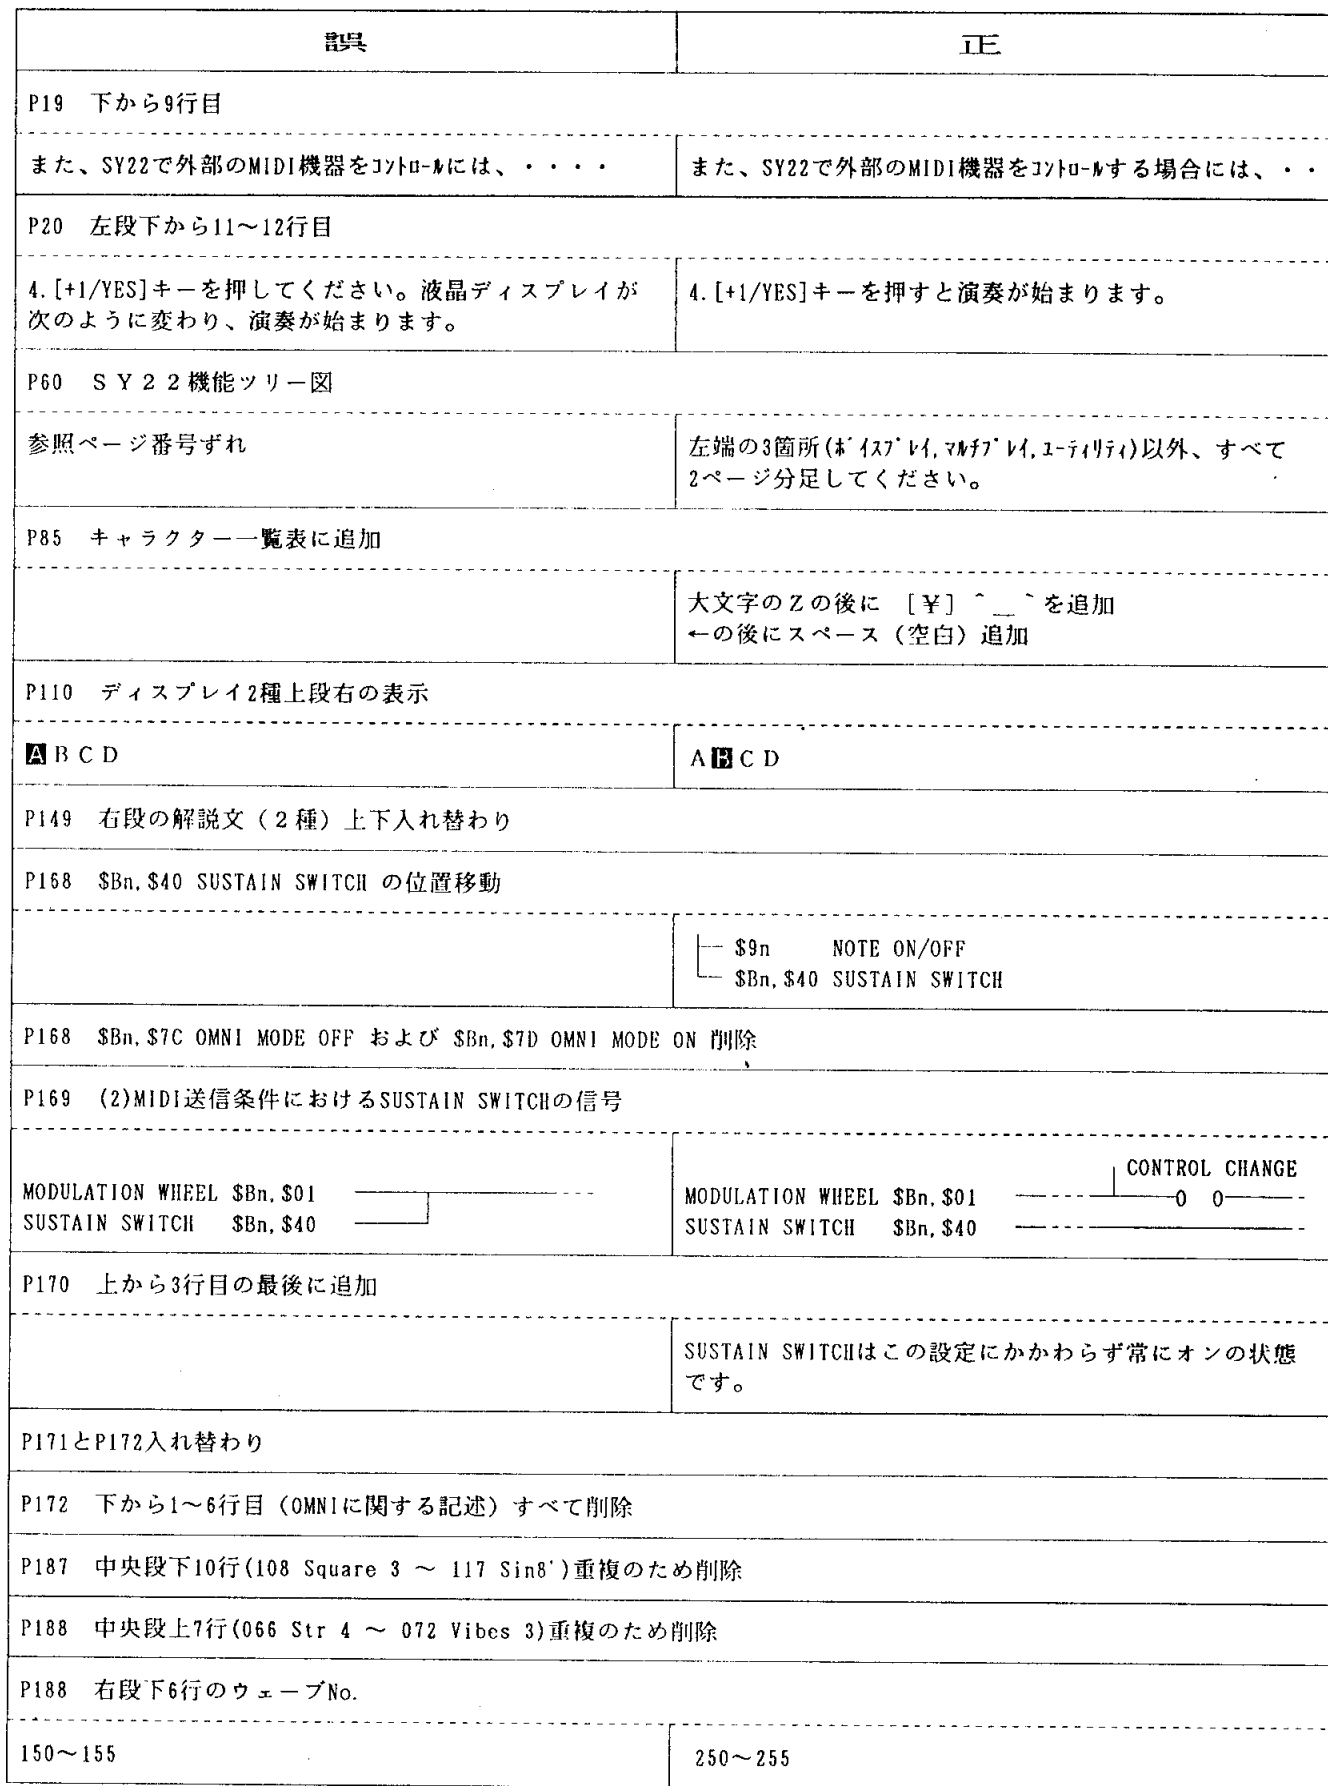 誤　正
P19　下から9行目
また、SY22で外部のMIDI機器をｺﾝﾄﾛｰﾙには、・・・・　また、SY22で外部のMIDI機器をｺﾝﾄﾛｰﾙする場合には、・・
P20　左段下から11～12行目
4.[+1/YES]キーを押してください。液晶ディスプレイが　4.[+1/YES]キーを押すと演奏が始まります。
次のように変わり、演奏が始まります。
P60　ＳＹ２２機能ツリー図
参照ページ番号ずれ　左端の3箇所(ﾎﾞｲｽﾌﾟﾚｲ,ﾏﾙﾁﾌﾟﾚｲ,ﾕｰﾃｨﾘﾃｨ)以外、すべて
2ページ分足してください。
P85　キャラクター一覧表に追加
大文字のＺの後に　[￥] ＾＿｀を追加
←の後にスペース（空白）追加
P110　ディスプレイ2種上段右の表示
A B C D　A B C D
P149　右段の解説文（２種）上下入れ替わり
P168　$Bn,$40 SUSTAIN SWITCH の位置移動
$9n　NOTE ON/OFF
$Bn,$40 SUSTAIN SWITCH
P168　$Bn,$7C OMNI MODE OFF および $Bn,$7D OMNI MODE ON 削除
P169　(2)MIDI送信条件におけるSUSTAIN SWITCHの信号
CONTROL CHANGE
MODULATION WHEEL $Bn,$01　MODULATION WHEEL $Bn,$01　O O
SUSTAIN SWITCH $Bn,$40　SUSTAIN SWITCH $Bn,$40
P170　上から3行目の最後に追加
SUSTAIN SWITCHはこの設定にかかわらず常にオンの状態
です。
P171とP172入れ替わり
P172　下から1～6行目（OMNIに関する記述）すべて削除
P187　中央段下10行(108 Square 3 ～ 117 Sin8')重複のため削除
P188　中央段上7行(066 Str 4 ～ 072 Vibes 3)重複のため削除
P188　右段下6行のウェーブNo.
150～155　250～255